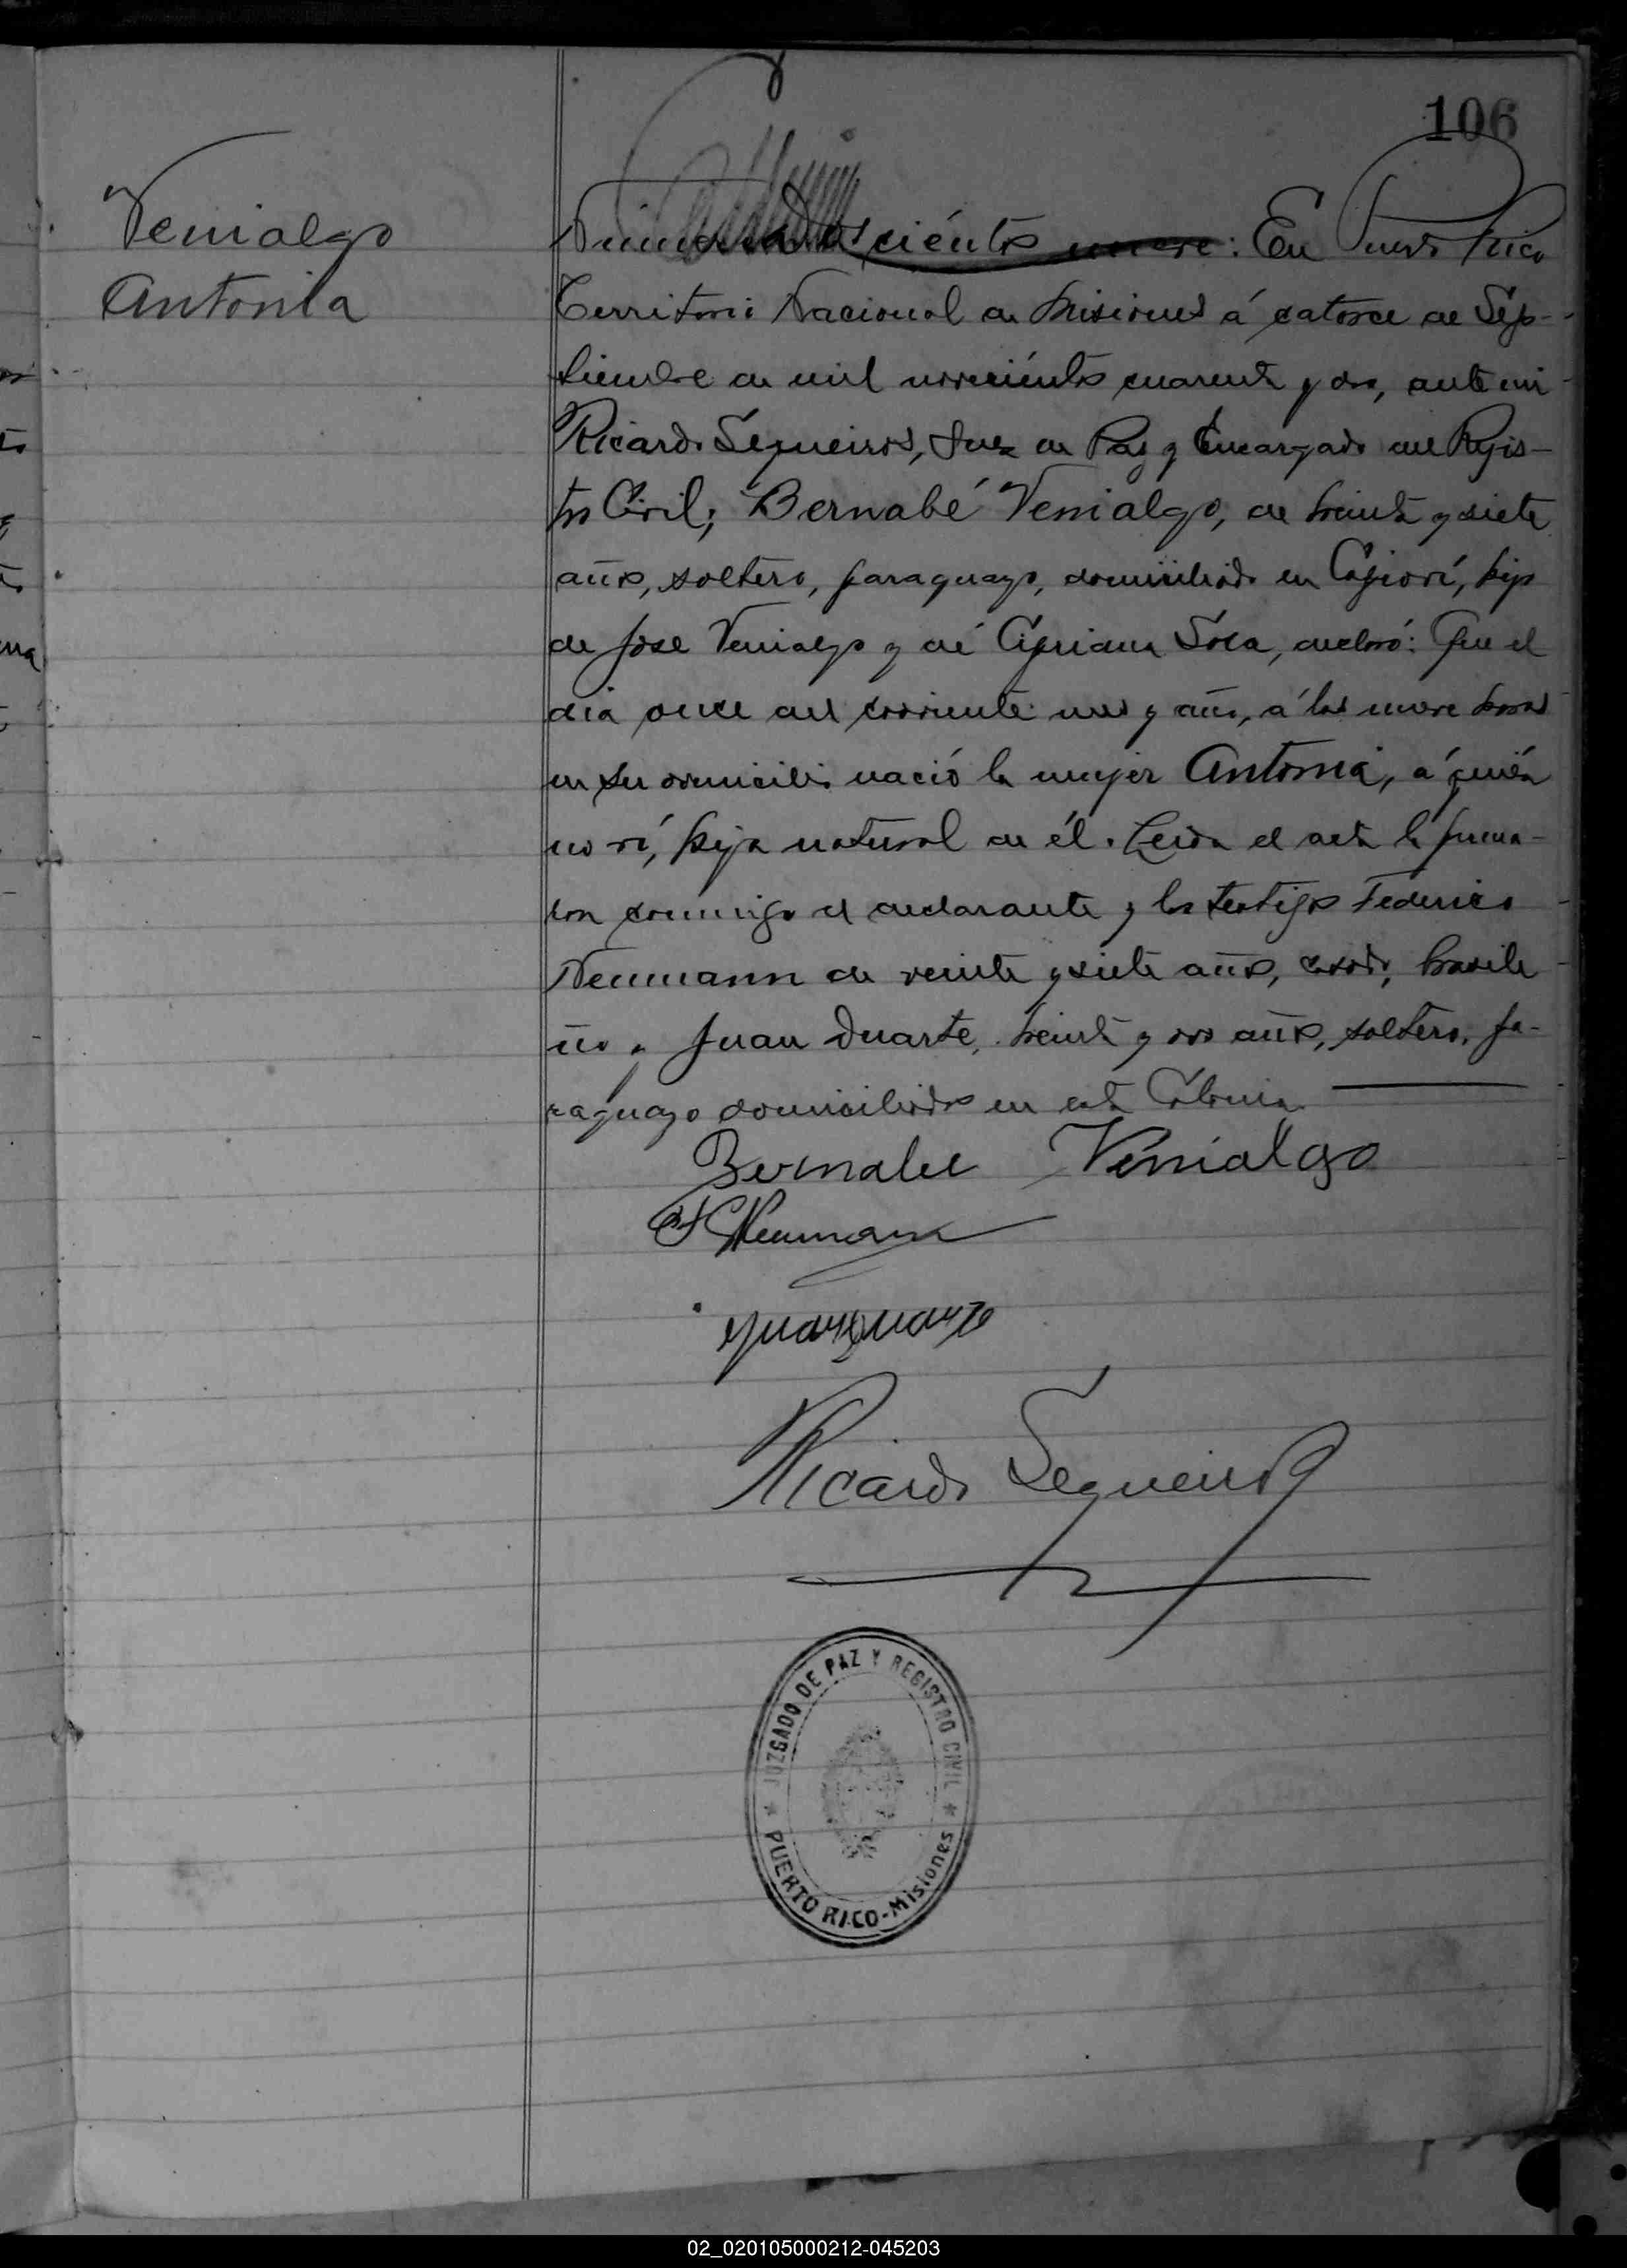 106
Venialgo
Antonia
Número dosciéntos nueve: En Puerto Rico
Territorio Nacional de Misiones á catorce de Sép-
tiembre de mil noveciéntos cuarenta y dos, ante mi
Ricardo Séqueiros, Juez de Paz y Encargado del Regis-
tro Civil; Bernabé Venialgo, de treinta y siete
años, soltero, paraguayo, domiciliado en Capioví, hijo
de José Venialgo y dé Cipriana Sosa, declaró: Que el
dia once del corriente mes y año, á las nueve horas
en su domicilio nació la mujer Antonia, á quién
no ví, hija natural de él. Leida el acta la firma-
ron conmigo el declarante y los testigos Federico
Neumann de veinte y siete años, casado, brasile-
ño y Juan Duarte, treinta y dos años, soltero, pa-
raguayo domiciliados en esta Cólonia.
Bernabe Venialgo
F Neumann
Juan Duarte
Ricardo Sequeiros
JUZGADO DE PAZ Y REGISTRO CIVIL
PUERTO RICO-Misiones
02_020105000212-045203